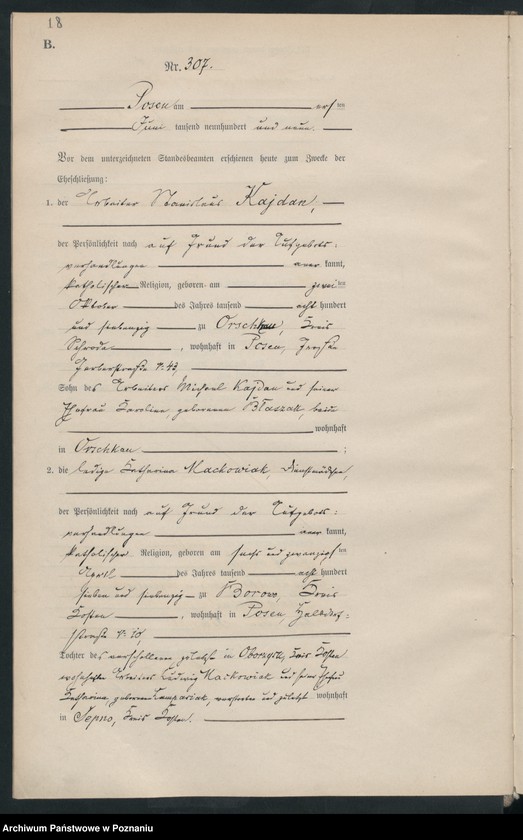 18
B.
Nr. 307.
Posen am ersten
Juni tausend neunhundert und neun.
Vor dem unterzeichneten Standesbeamten erschienen heute zum Zwecke der
Eheschließung:
1. der Arbeiter Stanislaus Kajdan,
der Persönlichkeit nach auf Grund der Aufgebots-
verhandlungen anerkannt,
katholischer Religion, geboren am zweiten
Oktober des Jahres tausend acht hundert
und siebenzig zu Orschkau, Kreis
Schroda, wohnhaft in Posen,
43,
Sohn des Arbeiters Michael Kajdan und seiner
Ehefrau Karoline, geborenen Błaszak, beide
wohnhaft
in Orschkau ;
2. die ledige Katharina Mackowiak, Dienstmädchen,
der Persönlichkeit nach auf Grund der Aufgebots-
verhandlungen anerkannt,
katholischer Religion, geboren am sechs und zwanzigsten
April des Jahres tausend acht hundert
sieben und siebenzig zu Borowo, Kreis
Kosten, wohnhaft in Posen, Halbdorf-
straße № 10
Tochter des verschollenen, zuletzt in Kreis Kosten
wohnhaften Arbeiters Ludwig Mackowiak und seiner Ehefrau
Katharina, geborenen verstorben und zuletzt wohnhaft
in Sepno, Kreis Kosten.
Archiwum Państwowe w Poznaniu